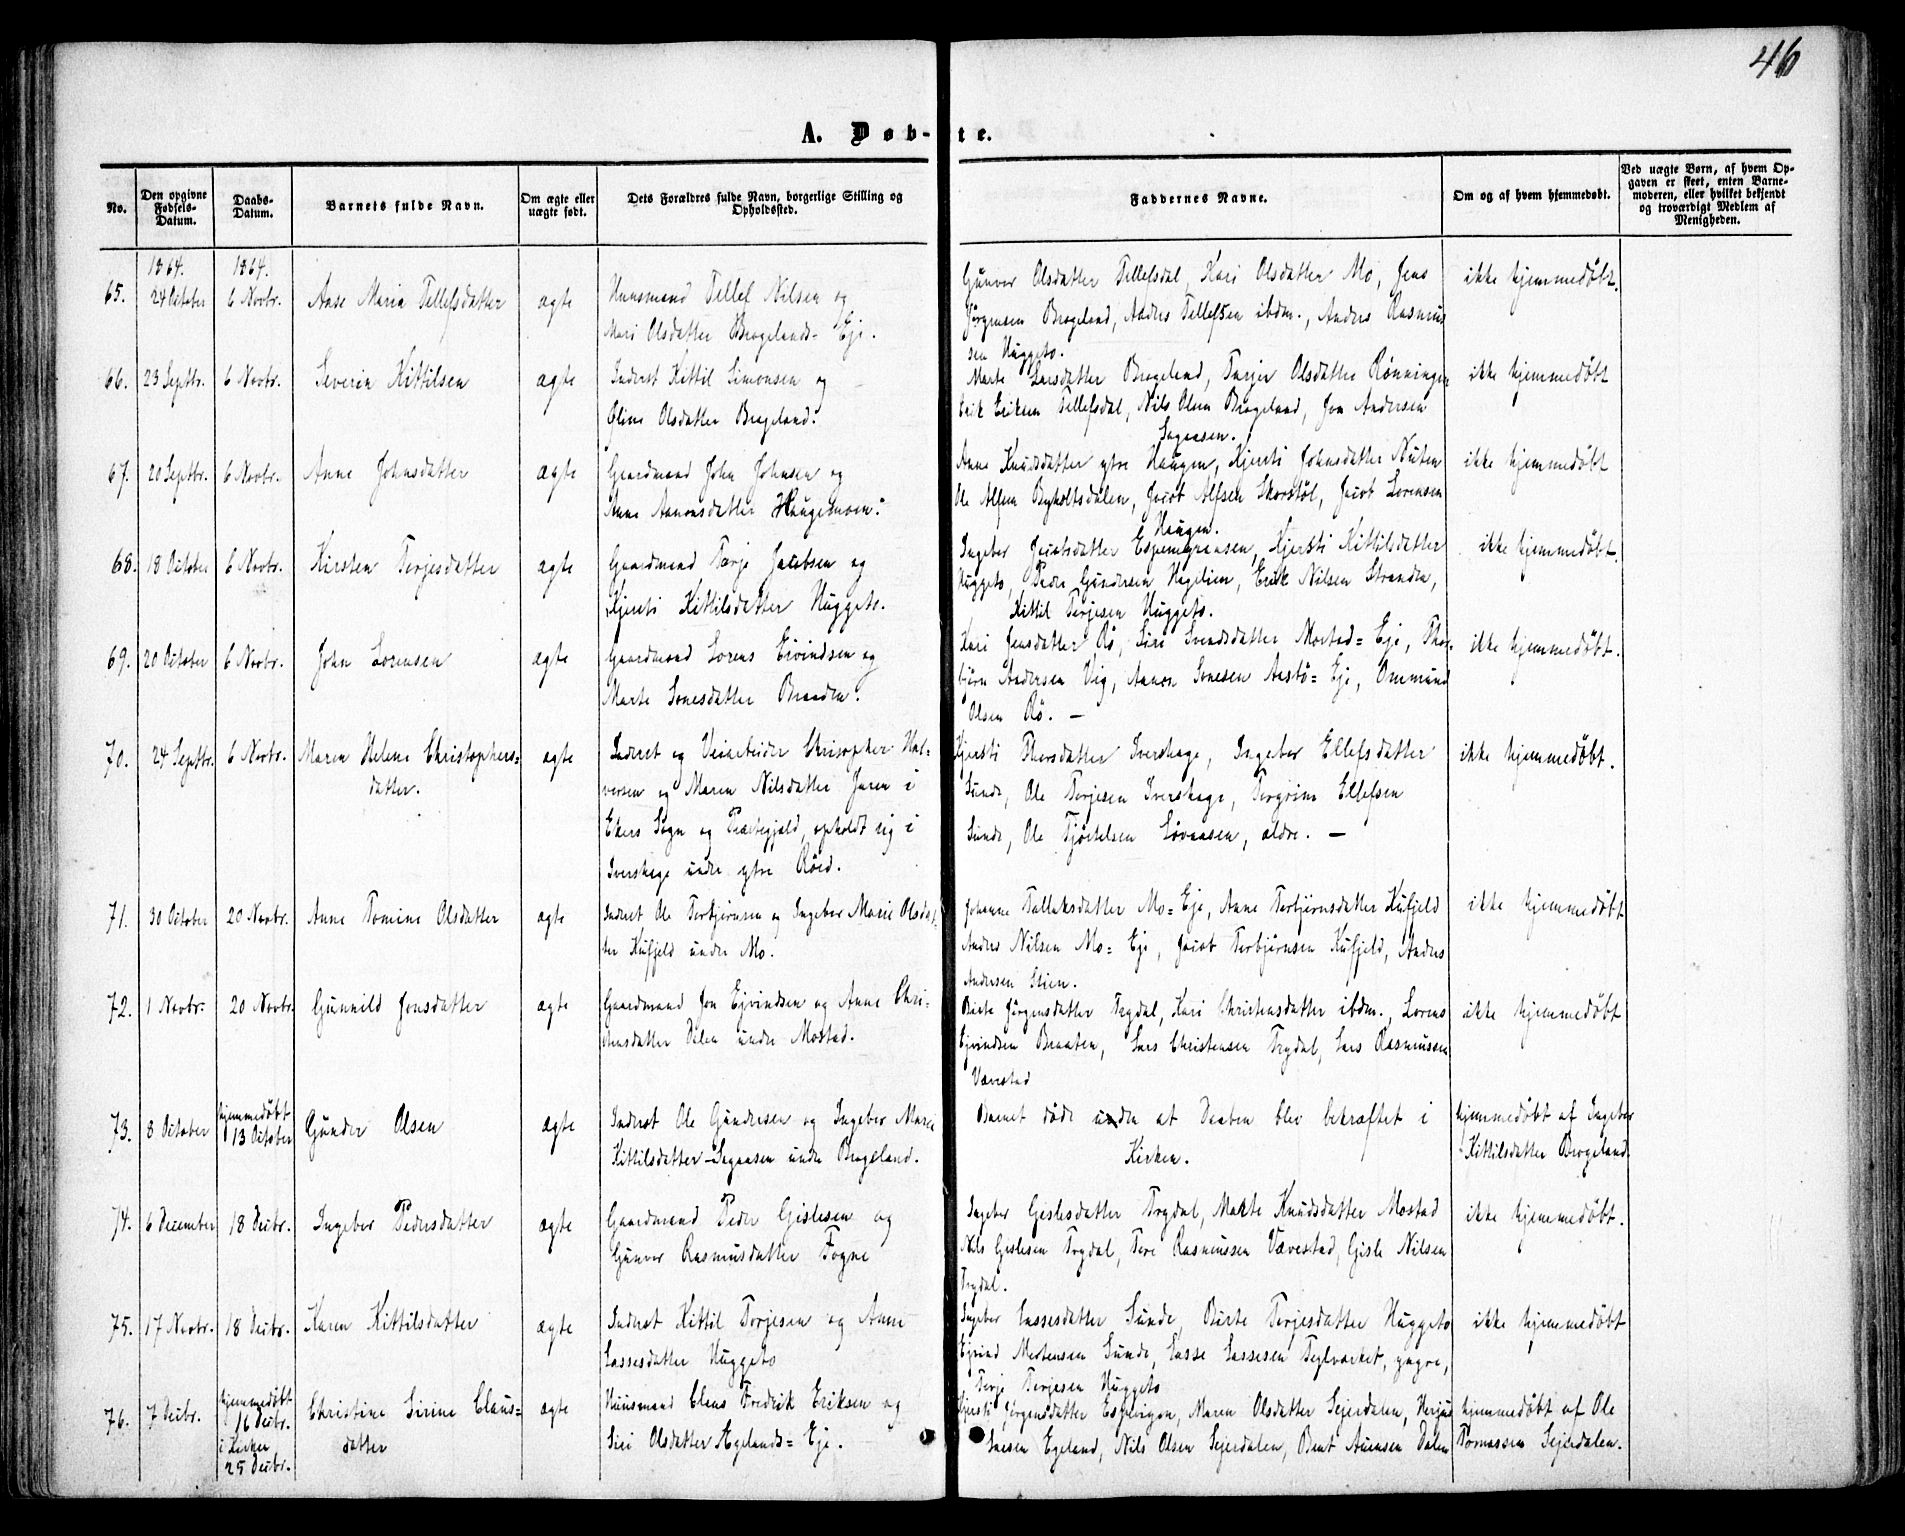 46
A. Døb-te.
No.
Den opgivne Fødsels-Datum.
Daabs-Datum.
Barnets fulde Navn.
Om ægte eller uægte født.
Dets Forældres fulde Navn, borgerlige Stilling og Opholdssted.
Faddernes Navne.
Om og af hvem hjemmedøbt.
Ved uægte Børn, af hvem Opgaven er skeet, enten Barnemoderen, eller hvilket bekjendt og troværdigt Medlem af Menigheden.
1864. 1864.
65. 24 October 6 Novbr. Aase Maria Tellefsdatter ægte
Huusmand Tellef Nilsen og
Mari Olsdatter Brogelands- Eje.
Gunvor Olsdatter Tellefsdal, Kari Olsdatter Mo, Jens
Jørgensen Brogeland, Anders Tellefsen ibdm., Anders Rasmus
sen Huggeto.
ikke hjemmedøbt.
66. 23 Septbr. 6 Novbr. Severin Kittilsen ægte
Inderst Kittil Simonsen og
Oline Olsdatter Brogeland.
Marte Larsdatter Brogeland, Tarjer Olsdatter Rønningen
Erik Eriksen Tellefsdal, Nils Olsen Brogeland, Jon Andersen
Sagaasen.
ikke hjemmedøbt
67. 20 Septbr. 6 Novbr. Anne Johnsdatter ægte
Gaardmand John Johnsen og
Anne Aanonsdatter Haugemoen.
Anne Knudsdatter ytre Haugen, Kjersti Johnsdatter Nuten
Ole Alfsen Byholtsdalen, Jacob Alfsen Skorstøl, Jacob Lorensen
Haugen.
ikke hjemmedøbt
68. 18 October 6 Novbr. Kirsten Terjesdatter ægte
Gaardmand Terje Jacobsen og
Kjersti Kittilsdatter Huggeto.
Ingebor Jacobsdatter Espemgrænsen, Kjersti Kittilsdatter
Huggeto, Peder Gundersen Hegelien, Erik Nilsen Stranden,
Kittil Terjesen Huggeto.
ikke hjemmedøbt.
69. 20 October 6 Novbr. John Lorensen ægte
Gaardmand Lorens Eivindsen og
Marte Jonesdatter Braaden.
Kari Jensdatter Rø, Siri Svendsdatter Mostad= Eje, Thor-
bjørn Andersen Vig, Aanon Jonesen Aastø= Eje, Ommund
Olsen Rø. —
ikke hjemmedøbt.
70. 24 Septbr. 6 Novbr. Maren Helene Christophers=
datter.
ægte
Inderst og Veiarbeider Chrisopher Hal-
vorsen og Maren Nilsdatter Juren i
Ekers Sogn og Præstegjeld, opholdt sig i
Iverskage under ytre Røed.
Kjersti Thorsdatter Iverskage, Ingebor Ellefsdatter
Sunde, Ole Terjesen Iverskage, Torgrim Ellefsen
Sunde, Ole Tjøstelsen Løvaasen, ældre. —
ikke hjemmedøbt.
71. 30 October 20 Novbr. Anne Tomine Olsdatter ægte
Inderst Ole Torbjørnsen og Ingebor Marie Olsdat-
ter Kufjeld under Mo.
Johanne Tallaksdatter Mo= Eje, Anne Torbjørnsdatter Kufjeld
Anders Nilsen Mo= Eje, Jacob Torbjørnsen Kufjeld, Anders
Andersen Stien.
ikke hjemmedøbt
72. 1 Novbr. 20 Novbr. Gunnild Jonsdatter ægte
Gaardmand Jon Ejvindsen og Anne Chri-
stensdatter Dalen under Mostad.
Birte Jørgensdatter Trydal, Kari Christensdatter ibdm., Lorens
Ejvindsen Braaten, Lars Christensen Trydal, Lars Rasmussen
Vævestad
ikke hjemmedøbt
73. 8 October hjemmedøbt
13 October Gunder Olsen ægte
Inderst Ole Gundersen og Ingebor Marie
Kittilsdatter Sagaasen under Brogeland.
Barnet døde inden at Daaben blev bekræftet i
Kirken.
hjemmedøbt af Ingebor
Kittilsdatter Brogeland.
74. 6 December 18 Decbr. Ingebor Pedersdatter ægte
Gaardmand Peder Gislesen og
Gunvor Rasmusdatter Fogne
Ingebor Gislesdatter Trydal, Marte Knudsdatter Mostad
Nils Gislesen Trydal, Tore Rasmussen Vævestad, Gisle Nilsen
Trydal.
ikke hjemmedøbt.
75. 17 Novbr. 18 Decbr. Karen Kittilsdatter ægte
Inderst Kittil Terjesen og Anne
Lassesdatter Huggeto
Ingebor Lassesdatter Sunde, Birte Terjesdatter Huggeto
Ejvind Mortensen Sunde, Lasse Lassesen Teglværket, yngre,
Terje Terjesen Huggeto
ikke hjemmedøbt
76. 7 Decbr. hjemmedøbt
16 Decbr.
i Kirken
25 Decbr.
Christine Sirine Claus=
datter
ægte
Huusmand Claus Fredrik Eriksen og
Siri Olsdatter Egelands= Eje.
Kjersti Jørgensdatter Espevigen, Maren Olsdatter Sejerdalen, Terjus
Egeland, Nils Olsen Sejerdalen, Bent Dalen
hjemmedøbt af Ole
Tomassen Sejerdalen.